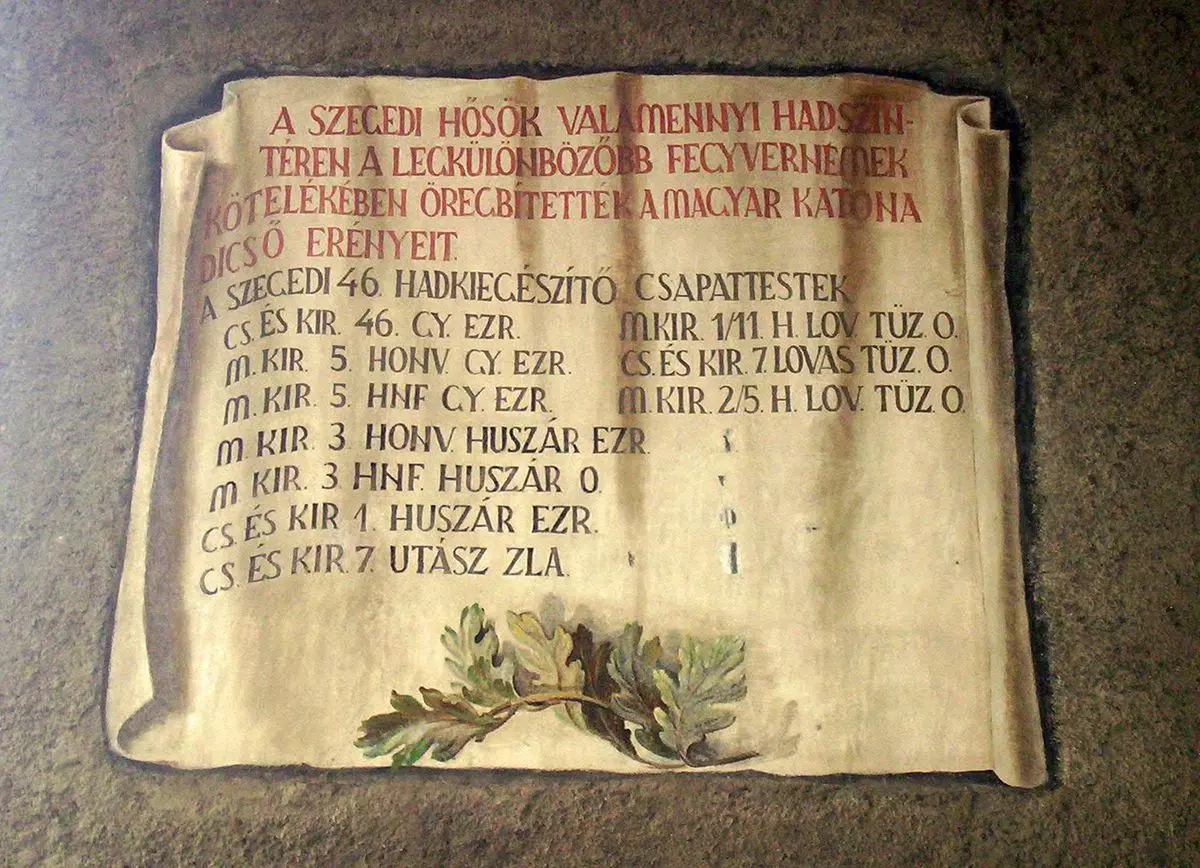 A SZEGEDI HŐSÖK VALAMENNYI HADSZIN-
TÉREN A LEGKÜLÖNBÖZŐBB FEGYVERNEMEK
KÖTELÉKÉBEN ÖREGBÍTETTÉK A MAGYAR KATONA
DICSŐ ERÉNYEIT.
A SZEGEDI 46. HADKIEGÉSZÍTŐ CSAPATTESTEK
CS. ÉS KIR. 46. GY. EZR. M. KIR. 1/11. H. LOV. TÜZ. O.
M. KIR. 5. HONV. GY. EZR. CS. ÉS KIR. 7. LOVAS TÜZ. O.
M. KIR. 5. HNF GY. EZR. M. KIR. 2/5. H. LOV. TÜZ. O.
M. KIR. 3. HONV. HUSZÁR EZR.
M. KIR. 3 HNF. HUSZÁR O.
CS. ÉS KIR 1. HUSZÁR EZR.
CS. ÉS KIR. 7. UTÁSZ ZLA.